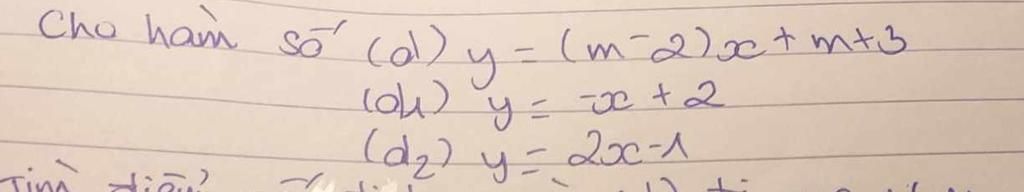 Cho hàm số (d) y = (m-2)x + m+3
(d1) y = -x + 2
(d2) y = 2x-1